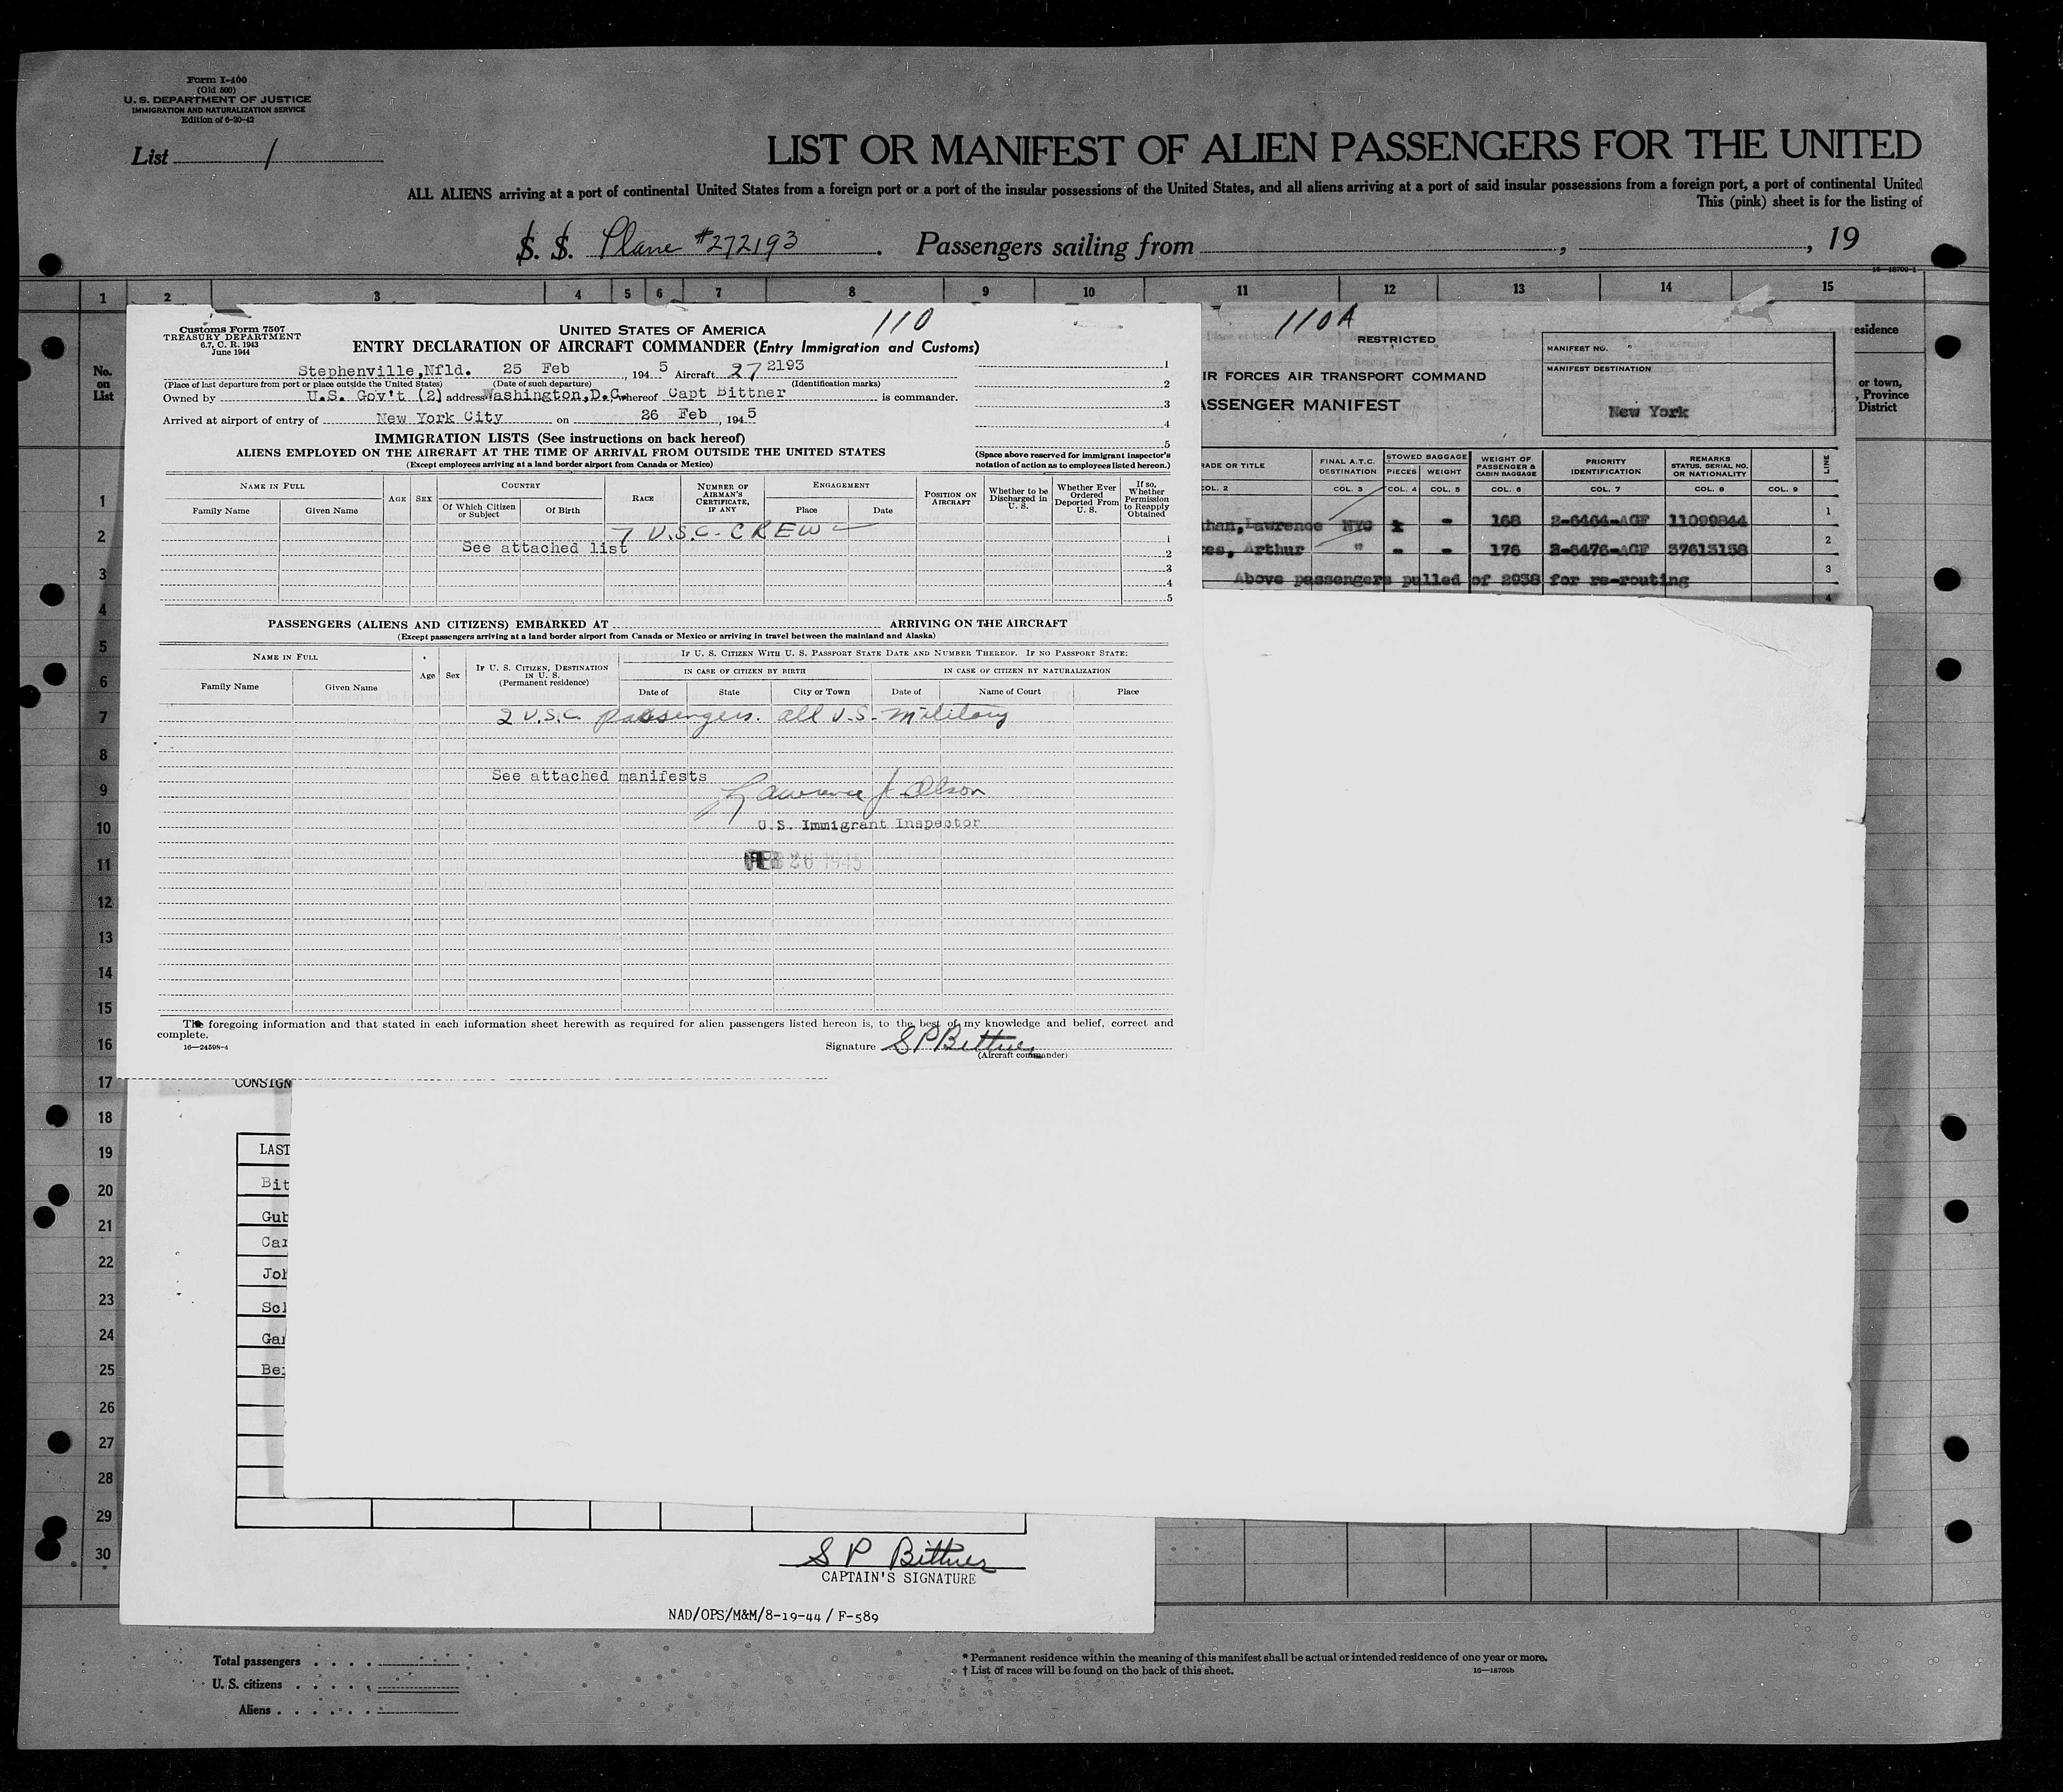 Form I-400
(Old 500)
U. S. DEPARTMENT OF JUSTICE
IMMIGRATION AND NATURALIZATION SERVICE
Edition of 6-20-42
List 1
LIST OR MANIFEST OF ALIEN PASSENGERS FOR THE UNITED
ALL ALIENS arriving at a port of continental United States from a foreign port or a port of the insular possessions of the United States, and all aliens arriving at a port of said insular possessions from a foreign port, a port of continental United
This (pink) sheet is for the listing of
S. S. Plane #272193 . Passengers sailing from , , 19
1 2 3 4 5 6 7 8 9 10 11 12 13 14 15
No.
on
List
esidence
or town,
, Province
District
Customs Form 7507
TREASURY DEPARTMENT
6.7, C. R. 1943
June 1944
UNITED STATES OF AMERICA
110
ENTRY DECLARATION OF AIRCRAFT COMMANDER (Entry Immigration and Customs)
Stephenville,Nfld. 25 Feb , 194 5 Aircraft 27 2193
(Place of last departure from port or place outside the United States) (Date of such departure) (Identification marks)
Owned by U.S. Gov't (2) address Washington,D.C. whereof Capt Bittner is commander.
Arrived at airport of entry of New York City on 26 Feb , 194 5
1
2
3
4
5
(Space above reserved for immigrant inspector's
notation of action as to employees listed hereon.)
IMMIGRATION LISTS (See instructions on back hereof)
ALIENS EMPLOYED ON THE AIRCRAFT AT THE TIME OF ARRIVAL FROM OUTSIDE THE UNITED STATES
(Except employees arriving at a land border airport from Canada or Mexico)
NAME IN FULL AGE SEX COUNTRY RACE NUMBER OF AIRMAN'S CERTIFICATE, IF ANY ENGAGEMENT POSITION ON AIRCRAFT Whether to be Discharged in U. S. Whether Ever Ordered Deported From U. S. If so, Whether Permission to Reapply Obtained
Family Name Given Name Of Which Citizen or Subject Of Birth Place Date
7 U.S.C. CREW
1
See attached list
2
3
4
5
PASSENGERS (ALIENS AND CITIZENS) EMBARKED AT ARRIVING ON THE AIRCRAFT
(Except passengers arriving at a land border airport from Canada or Mexico or arriving in travel between the mainland and Alaska)
NAME IN FULL Age Sex IF U. S. CITIZEN, DESTINATION IN U. S. (Permanent residence) IF U. S. CITIZEN WITH U. S. PASSPORT STATE DATE AND NUMBER THEREOF. IF NO PASSPORT STATE:
IN CASE OF CITIZEN BY BIRTH IN CASE OF CITIZEN BY NATURALIZATION
Family Name Given Name Date of State City or Town Date of Name of Court Place
2 U.S.C. passengers. all U.S. military
See attached manifests
Lawrence J Olson
U.S. Immigrant Inspector
FEB 26 1945
The foregoing information and that stated in each information sheet herewith as required for alien passengers listed hereon is, to the best of my knowledge and belief, correct and
complete.
16—24598-4
Signature S P Bittner
(Aircraft commander)
110A
RESTRICTED
IR FORCES AIR TRANSPORT COMMAND
ASSENGER MANIFEST
MANIFEST NO.
MANIFEST DESTINATION
New York
RADE OR TITLE FINAL A.T.C. DESTINATION STOWED BAGGAGE PIECES WEIGHT WEIGHT OF PASSENGER & CABIN BAGGAGE PRIORITY IDENTIFICATION REMARKS STATUS, SERIAL NO. OR NATIONALITY LINE
COL. 2 COL. 3 COL. 4 COL. 5 COL. 6 COL. 7 COL. 8 COL. 9
han,Lawrence NYC - 168 2-6464-AGF 11099844 1
es, Arthur " - - 176 2-6476-AGF 37613158 2
Above passengers pulled of 2938 for re-routing 3
4
1
2
3
4
5
6
7
8
9
10
11
12
13
14
15
16
17
18
19
20
21
22
23
24
25
26
27
28
29
30
CONSIGN
LAST
Bit
Gub
Car
Joh
Sch
Gar
Be
S P Bittner
CAPTAIN'S SIGNATURE
NAD/OPS/M&M/8-19-44 / F-589
Total passengers
U. S. citizens
Aliens
* Permanent residence within the meaning of this manifest shall be actual or intended residence of one year or more.
† List of races will be found on the back of this sheet.